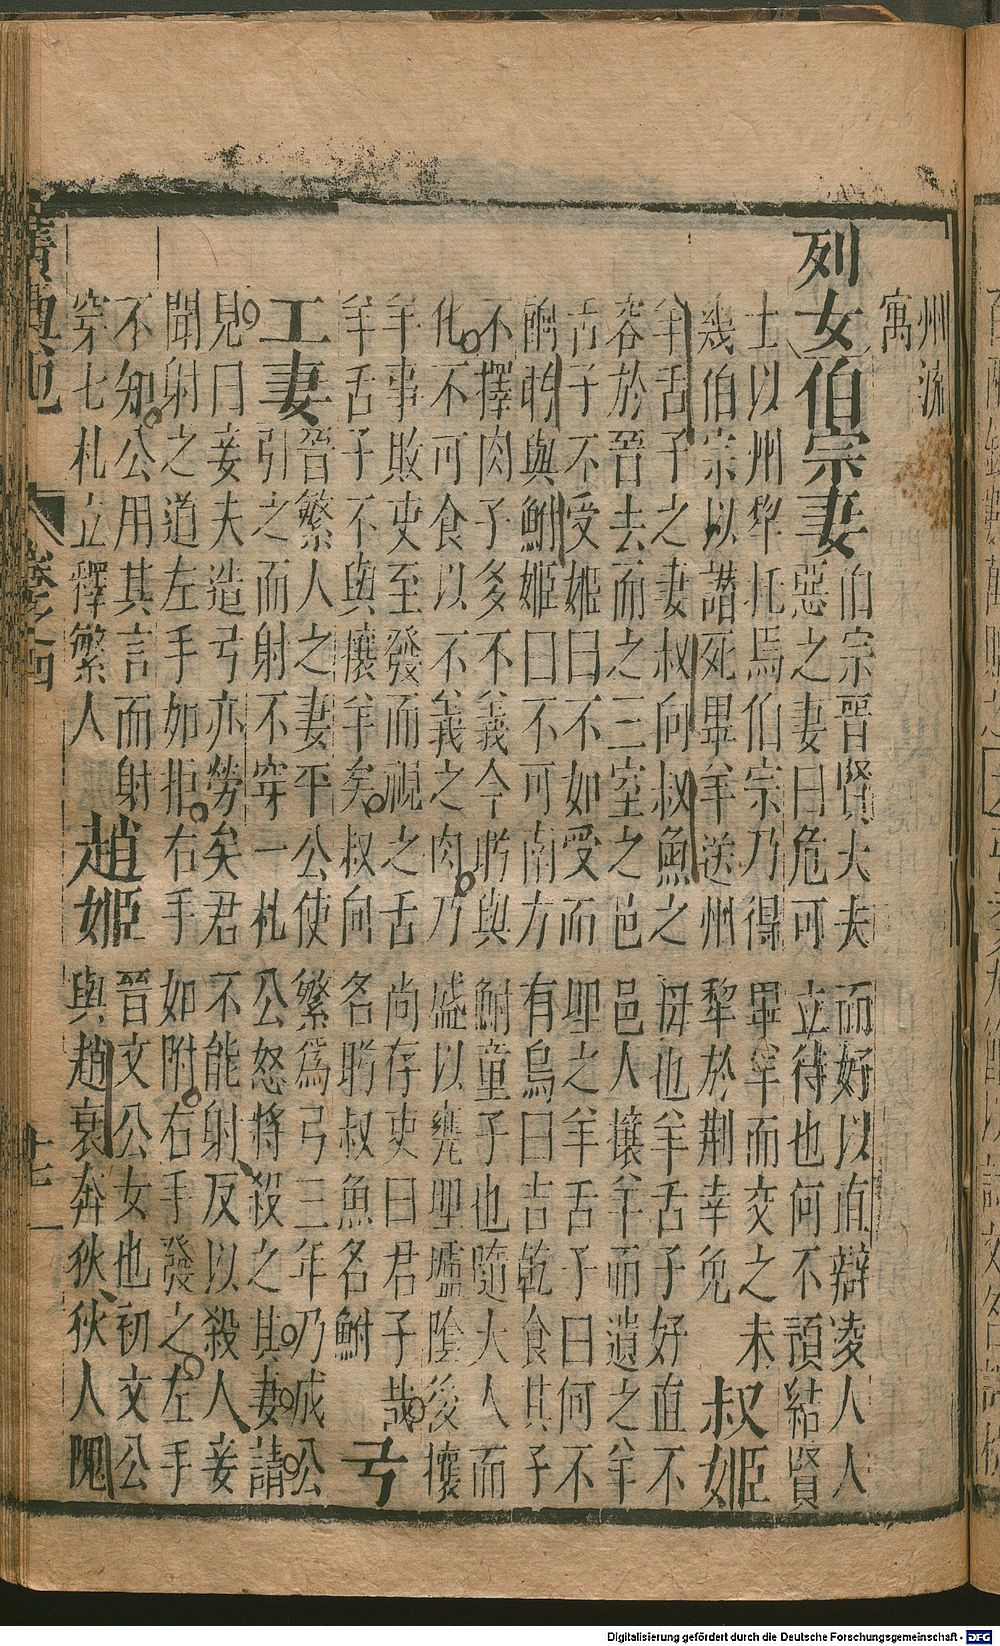 州
寓
列女伯宗妻
伯宗晋賢大夫而好以直辯凌人人
惡之妻曰危可立待也何不預結賢
士以州犂托焉伯宗乃得畢羊而交之未
幾伯宗以譖死畢羊送州犂於荆幸免
叔姬
羊舌子之妻叔向叔魚之母也羊舌子好直不
容於晉去而之三室之邑邑人攘羊而遺之羊
舌子不受姬曰不如受而埋之羊舌子曰何不
餉肸與鮒姬曰不可南方有鳥曰吉乾食其子
不擇肉子多不義今肸與鮒童子也隨大人而
化不可食以不義之肉乃盛以甕埋壚陰後攘
羊事敗吏至發而視之舌尚存吏曰君子哉
羊舌子不與攘羊矣叔向名肸叔魚名鮒
弓工妻
晉繁人之妻平公使繁爲弓三年乃成公
引之而射不穿一札公怒將殺之其妻請
見曰妾夫造弓亦勞矣君不能射反以殺人妾
聞射之道左手如拒右手如附右手發之左手
不知公用其言而射
穿七札立釋繁人
趙姬
晉文公女也初文公
與趙衰奔狄狄人隗
卷之四
Digitalisierung gefördert durch die Deutsche Forschungsgemeinschaft - DFG